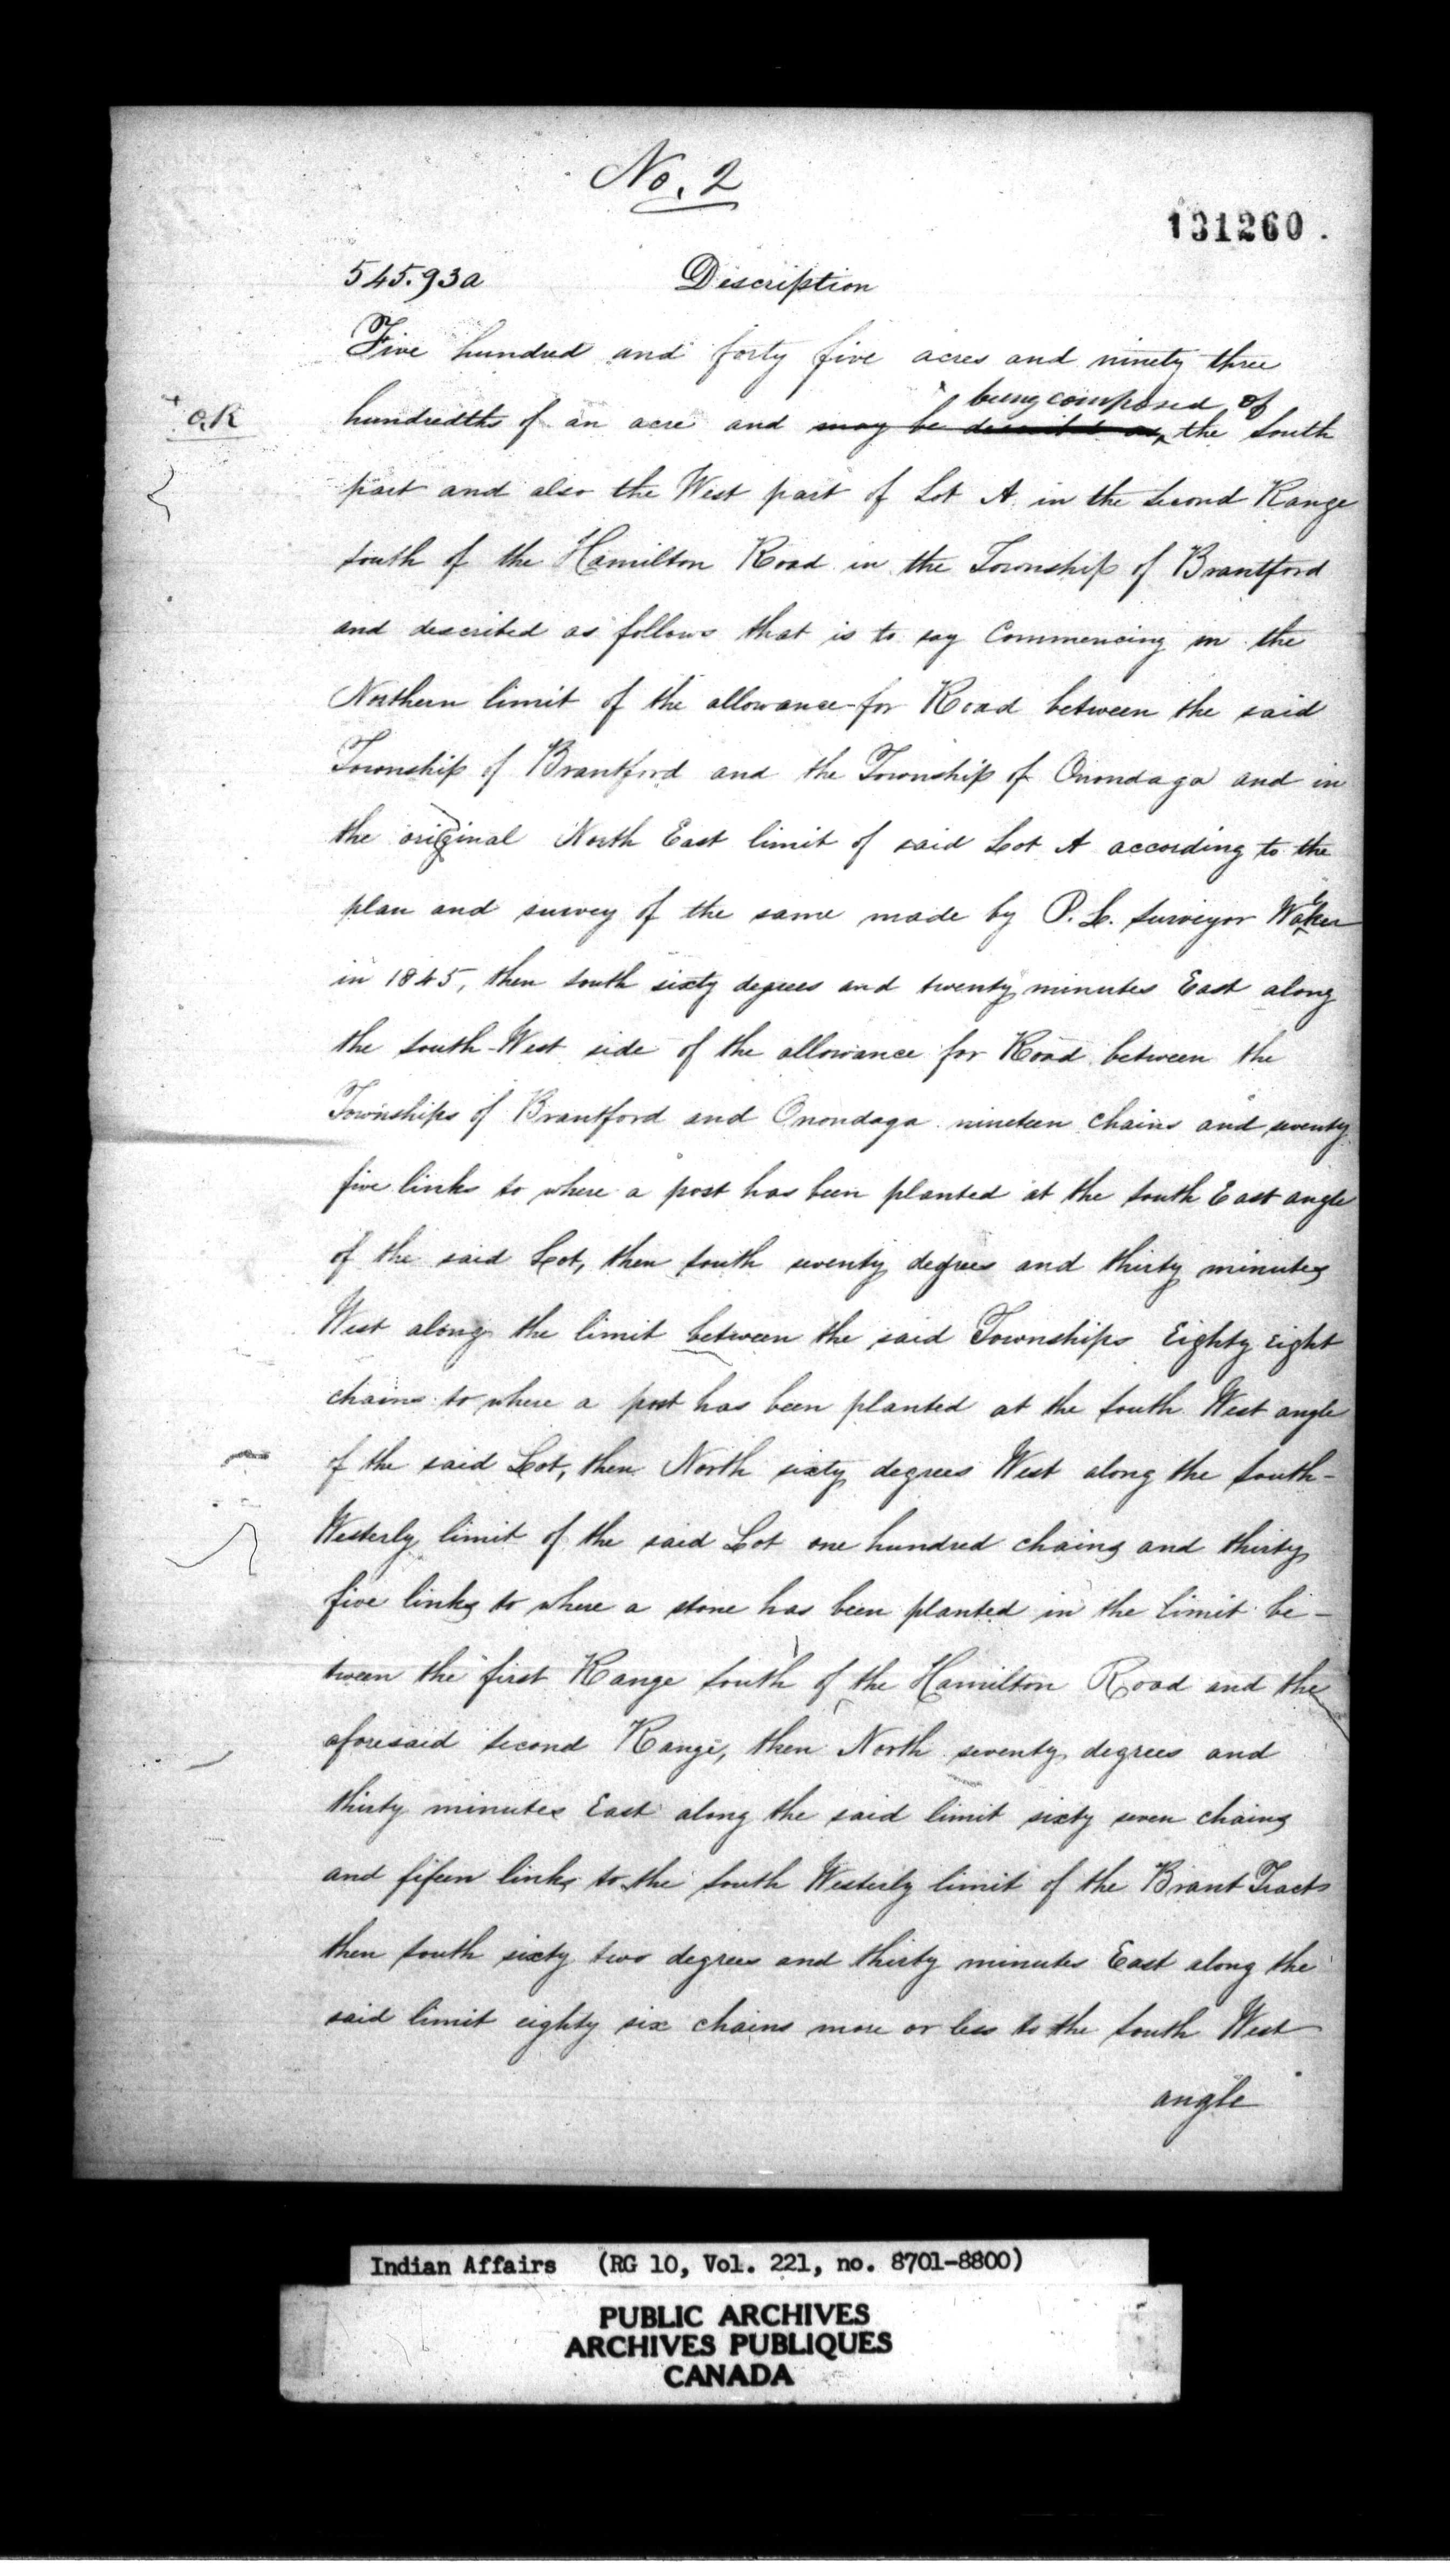 No. 2
131260.
545.93a Description
Five hundred and forty five acres and ninety three
being composed of
hundredths of an acre and may be described as the South
O.K
part and also the West part of Lot A in the Second Range
South of the Hamilton Road in the Township of Brantford
and described as follows that is to say Commencing in the
Northern limit of the allowance for Road between the said
Township of Brantford and the Township of Onondaga and in
the original North East limit of said Lot A according to the
plan and survey of the same made by P. L. Surveyor
in 1845, then South sixty degrees and twenty minutes East along
the South-West side of the allowance for Road between the
Townships of Brantford and Onondaga nineteen chains and seventy
five links to where a post has been planted at the South East angle
of the said Lot, then South seventy degrees and thirty minutes
West along the limit between the said Townships Eighty Eight
chains to where a post has been planted at the South West angle
of the said Lot, then North sixty degrees West along the South-
Westerly limit of the said Lot one hundred chains and thirty
five links to where a stone has been planted in the limit be-
tween the first Range South of the Hamilton Road and the
aforesaid Second Range, then North seventy degrees and
thirty minutes East along the said limit sixty seven chains
and fifeen links to the South Westerly limit of the Brant Tract
then South sixty two degrees and thirty minutes East along the
said limit eighty six chains more or less to the South West
angle
Indian Affairs (RG 10, Vol. 221, no. 8701-8800)
PUBLIC ARCHIVES
ARCHIVES PUBLIQUES
CANADA